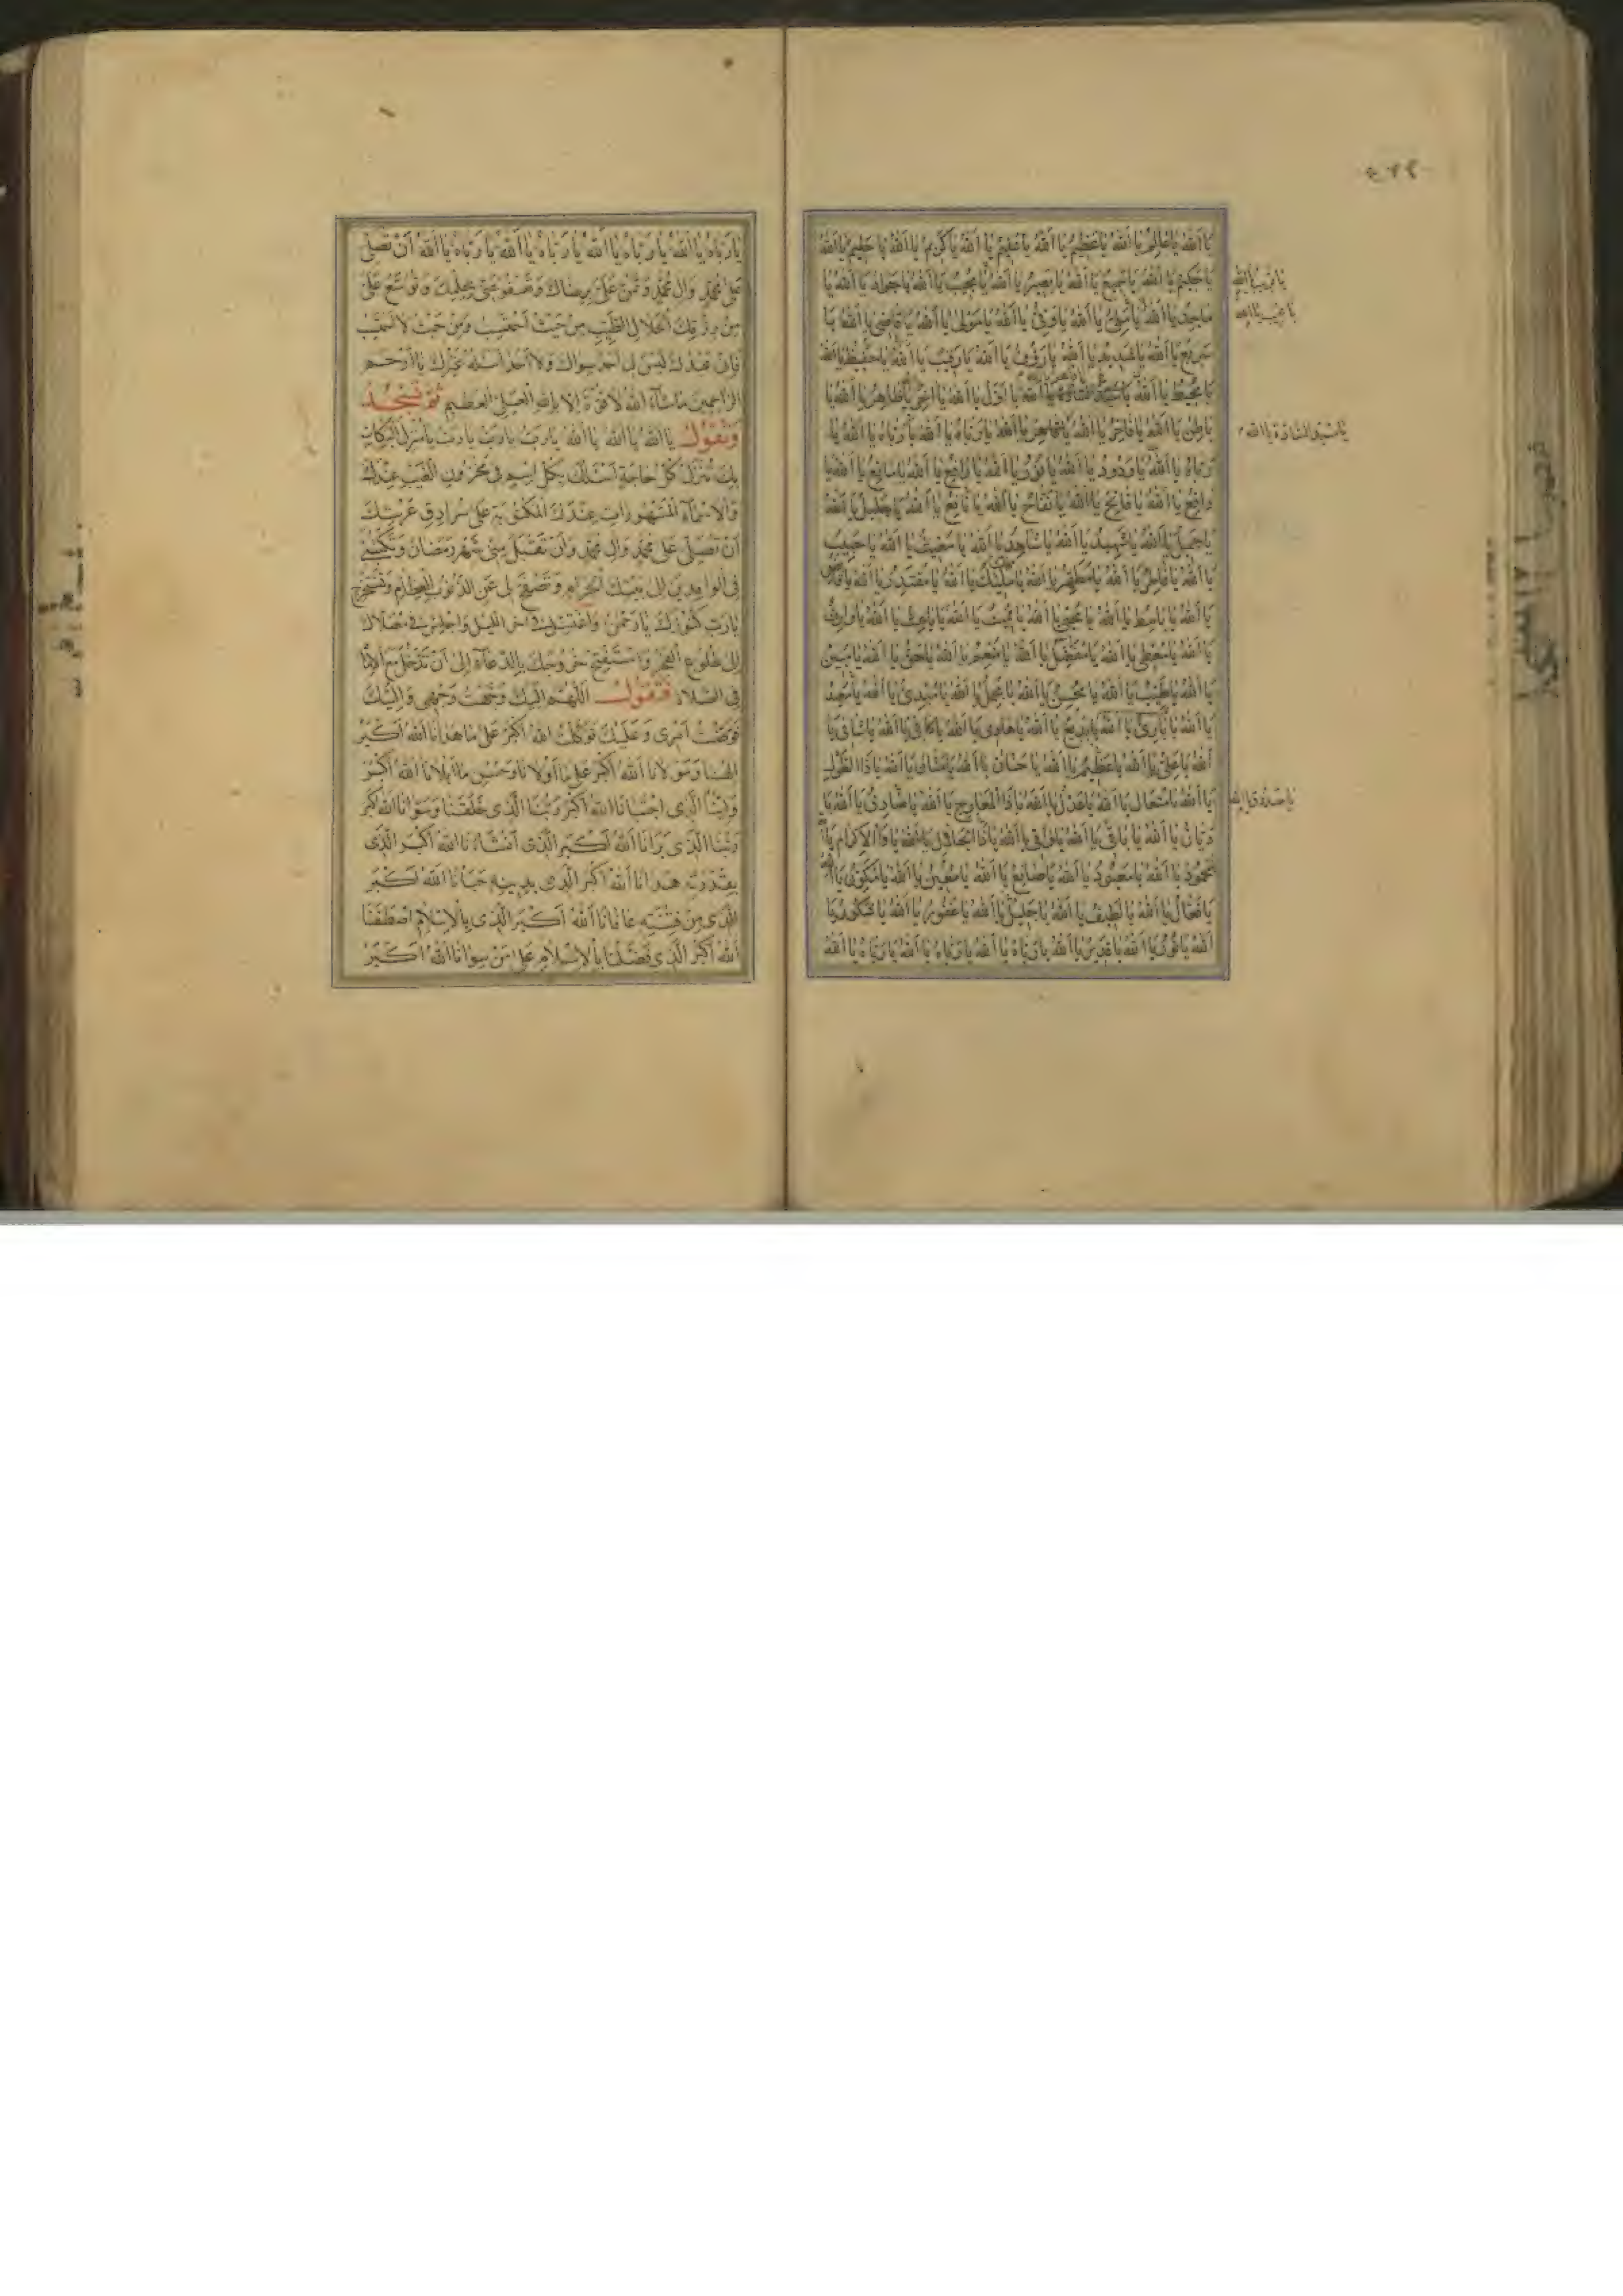 يا الله يا عالم يا الله يا عظيم يا الله يا عليم يا الله يا كريم يا الله يا حليم يا الله
يا حكيم يا الله يا سميع يا الله يا بصير يا الله يا مجيب يا الله يا جواد يا الله يا
ماجد يا الله يا ملي يا الله يا وفي يا الله يا مولى يا الله يا قاضي يا الله يا
سريع يا الله يا شديد يا الله يا رؤف يا الله يا رقيب يا الله يا حفيظ يا الله
يا محيط يا الله يا الله يا اول يا الله يا اخر يا الله يا ظاهر يا الله يا
باطن يا الله يا فاخر يا الله يا قاهر يا الله يا رباه يا الله يا رباه يا الله يا
رباه يا الله يا ودود يا الله يا نور يا الله يا رافع يا الله يا مانع يا الله يا
دافع يا الله يا فاتح يا الله يا نفاح يا الله يا نافع يا الله يا جليل يا الله
يا جميل يا الله يا شهيد يا الله يا شاهد يا الله يا مغيث يا الله يا حبيب
يا الله يا فاطر يا الله يا مطهر يا الله يا مليك يا الله يا مقتدر يا الله يا قابض
يا الله يا باسط يا الله يا محيي يا الله يا مميت يا الله يا باعث يا الله يا وارث
يا الله يا معطي يا الله يا مفضل يا الله يا منعم يا الله يا حق يا الله يا مبين
يا الله يا طيب يا الله يا محسن يا الله يا مجمل يا الله يا مبدئ يا الله يا معيد
يا الله يا بارئ يا الله يا بديع يا الله يا هادي يا الله يا كافي يا الله يا شافي يا
الله يا علي يا الله يا عظيم يا الله يا حنان يا الله يا منان يا الله يا ذا الطول
يا الله يا متعال يا الله يا عدل يا الله يا ذا المعارج يا الله يا صادق يا الله يا
ديان يا الله يا باقي يا الله يا واقي يا الله يا ذا الجلال يا الله يا ذا الاكرام يا الله
يا محمود يا الله يا معبود يا الله يا صانع يا الله يا معين يا الله يا مكون يا الله
يا فعال يا الله يا لطيف يا الله يا جليل يا الله يا غفور يا الله يا شكور يا
الله يا نور يا الله يا قدير يا الله يا رباه يا الله يا رباه يا الله يا رباه يا الله
يا قريب يا الله
يا صدوق يا الله
يا رباه يا الله يا رباه يا الله يا رباه يا الله يا رباه يا الله ان تصلي
على محمد وال محمد وتمن علي برضاك وتعفو عني بحلمك وتوسع علي
من رزقك الحلال الطيب من حيث احتسب ومن حيث لا احتسب
فاني عبدك ليس لي احد سواك ولا احد اسئله غيرك يا ارحم
الراحمين ما شاء الله لا قوة الا بالله العلي العظيم ثم تسجد
وتقول يا الله يا الله يا الله يا رب يا رب يا رب يا منزل البركات
بك تنزل كل حاجة اسئلك بكل اسم في مخزون الغيب عندك
والاسماء المشهورات عندك المكتوبة على سرادق عرشك
ان تصلي على محمد وال محمد وان تقبل مني شهر رمضان وتكتبني
في الوافدين الى بيتك الحرام وتصفح لي عن الذنوب العظام وتستخرج
يا رب كنوزك يا رحمن واغتسل في اخر الليل واجلس في مصلاك
الى طلوع الفجر واستفتح خروجك بالدعاء الى ان تدخل مع الامام
في الصلاة فتقول اللهم اليك وجهت وجهي واليك
فوضت امري وعليك توكلت الله اكبر على ما هدانا الله اكبر
الهنا ومولانا الله اكبر على ما اولانا وحسن ما ابلانا الله اكبر
ولينا الذي اجتبانا الله اكبر ربنا الذي خلقنا وسوانا الله اكبر
ربنا الذي برانا الله اكبر الذي انشانا الله اكبر الذي
بقدرته هدانا الله اكبر الذي بدينه حبانا الله اكبر
الذي من فتنته عافانا الله اكبر الذي بالاسلام اصطفانا
الله اكبر الذي فضلنا بالاسلام على من سوانا الله اكبر